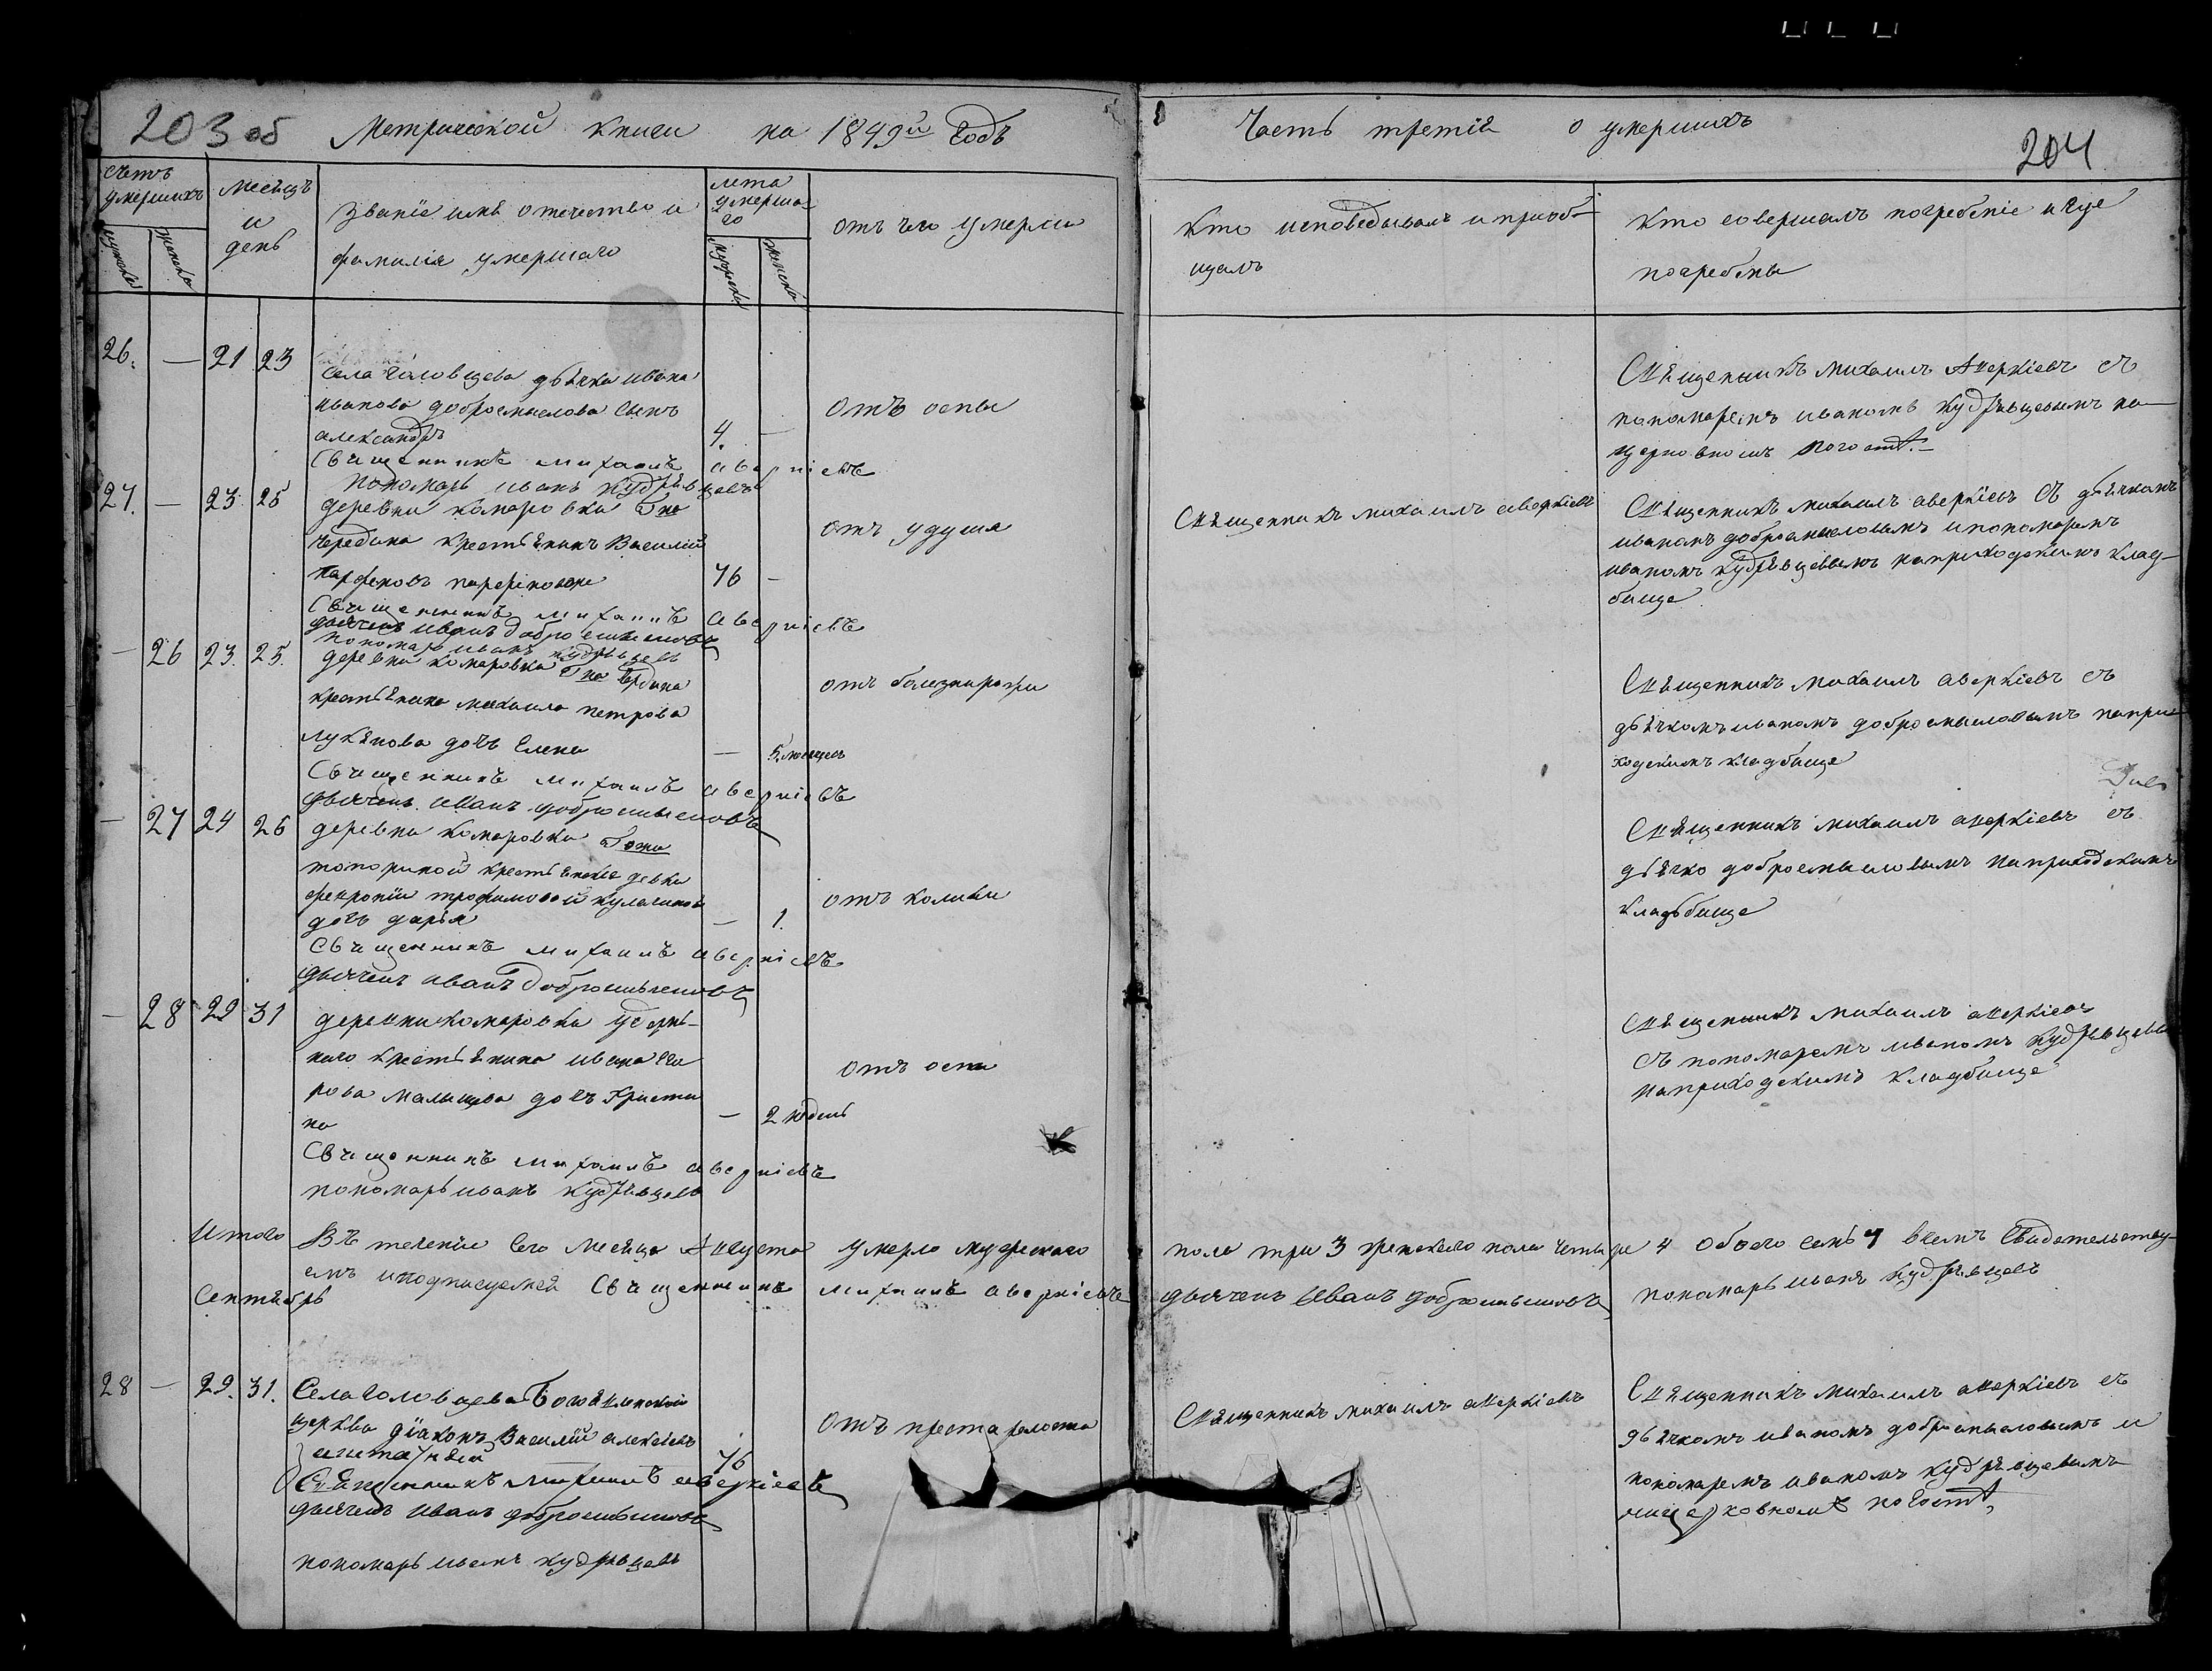 203 об
Метрической книги на 1849й Годъ
Часть третія о умершихъ
204
счетъ умершихъ
мужска
женска
Месяцъ и день
Званіе имѣ отечество и
фамилія умершаго
лета умерша-го
мужеска
женска
отъ чего умерли
Кто исповедывалъ и приоб-
щалъ
Кто совершалъ погребеніе и где
погребены
26. — 21 23
села Головщева дьячка ивана
иванова добросмыслова сынъ
александръ 4. —
отъ оспы
Священникъ михаилъ Аверкіевъ съ
пономаремъ иваномъ Кудрявцевымъ на
церковномъ погостѣ.
Священникъ михаилъ аверкіевъ
пономарь иванъ кудрявцевъ
27. — 23 25
деревни комаровки Гна
Чередина крестьянинъ Василій
парфеновъ 76 —
отъ удушя
Священникъ михаилъ аверкіевъ
Священникъ михаилъ аверкіевъ съ дьячкомъ
иваномъ добросмысловымъ и пономаремъ
иваномъ кудрявцевымъ на приходскимъ клад-
бище
Священникъ михаилъ аверкіевъ
дьячекъ иванъ добросмысловъ
пономарь иванъ кудрявцевъ
— 26 23. 25.
деревни комаровки Гна
крестьянина михаила петрова
лукянова дочь Елена — 5. месяцевъ
отъ болезни
Священникъ михаилъ аверкіевъ съ
дьячкомъ иваномъ добросмысловымъ на при-
ходскимъ кладбище
Священникъ михаилъ аверкіевъ
дьячекъ иванъ добросмысловъ
— 27 24 26
деревни комаровки Гжи
топориной крестьянской девки
февроніи трофимовой
дочь дарья — 1.
отъ
Священникъ михаилъ аверкіевъ съ
дьячко добросмысловымъ на приходскимъ
кладьбище
Священникъ михаилъ аверкіевъ
дьячекъ иванъ добросмысловъ
— 28 29 31
деревни комаровки удель-
наго крестьянина ивана его
рова малышева дочь Христи
на — 2 недель
отъ оспы
Священникъ михаилъ аверкіевъ
съ пономаремъ иваномъ кудрявцевы
на приходскимъ кладбище
Священникъ михаилъ аверкіевъ
пономарь иванъ кудрявцевъ
Итого
Въ теченіи сего месяца Августа умерло мужескаго пола три 3 женскаго пола четыре 4 обоего семь 7 всемъ свидетельству-
емъ и подписуемся Священникъ михаилъ аверкіевъ дьячекъ иванъ добросмысловъ пономарь иванъ кудрявцевъ
Сентябрь
28 — 29. 31.
Села Головщева Богоявленской
церкви діаконъ Василій алексеевъ
76
отъ престарелости
Священникъ михаилъ аверкіевъ
Священникъ михаилъ аверкіевъ съ
дьячкомъ иваномъ добросмысловымъ и
пономаремъ иваномъ кудрявцевымъ
на церковномъ погостѣ
Священникъ михаилъ аверкіевъ
дьячекъ иванъ добросмысловъ
пономарь иванъ кудрявцевъ